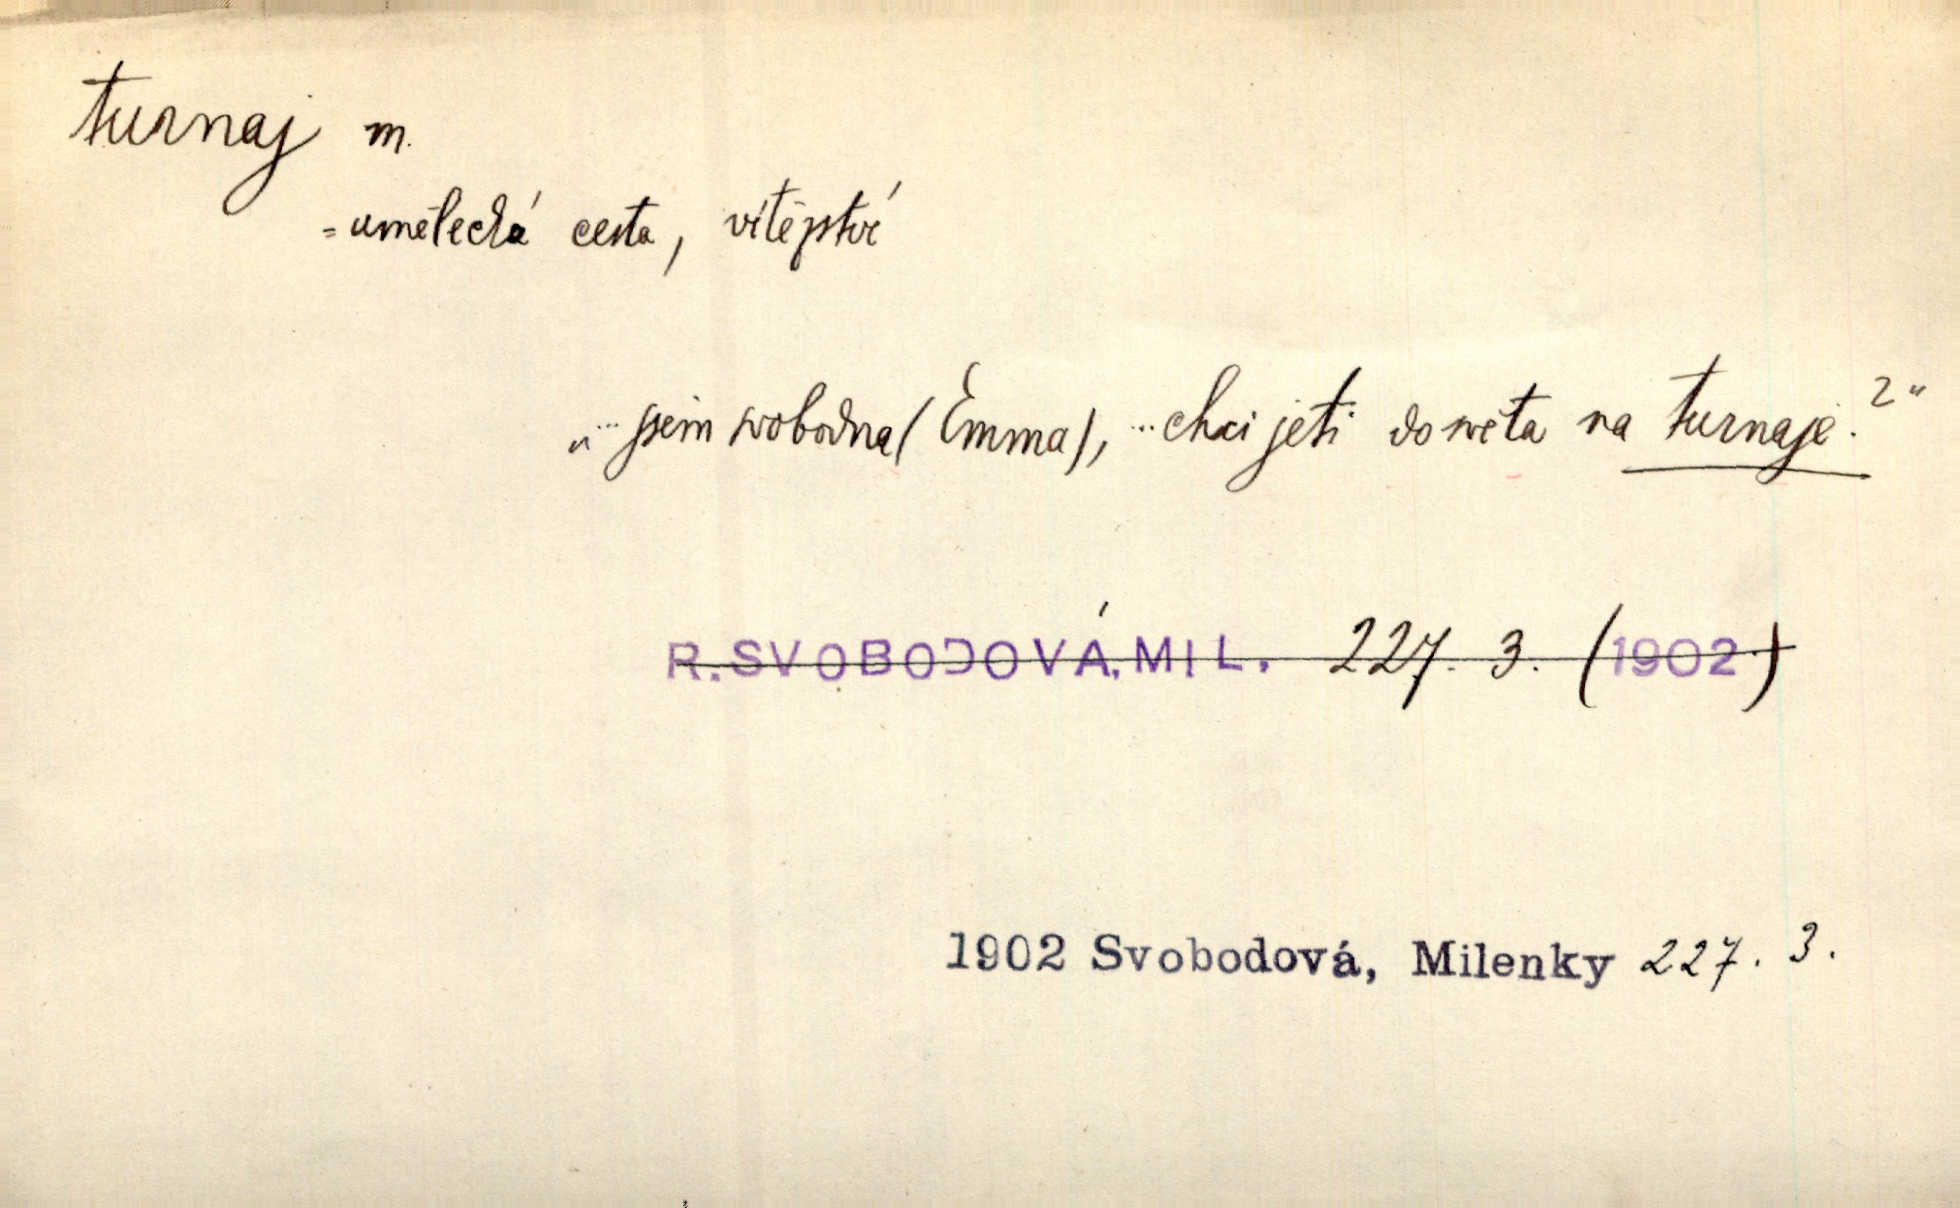 turnaj m.
= umělecká cesta, vítězství
„... jsem svobodna (Emma), ... chci jeti do světa na turnaje. 2"
R. SVOBODOVÁ, MIL. 227. 3. (1902.)
1902 Svobodová, Milenky 227. 3.